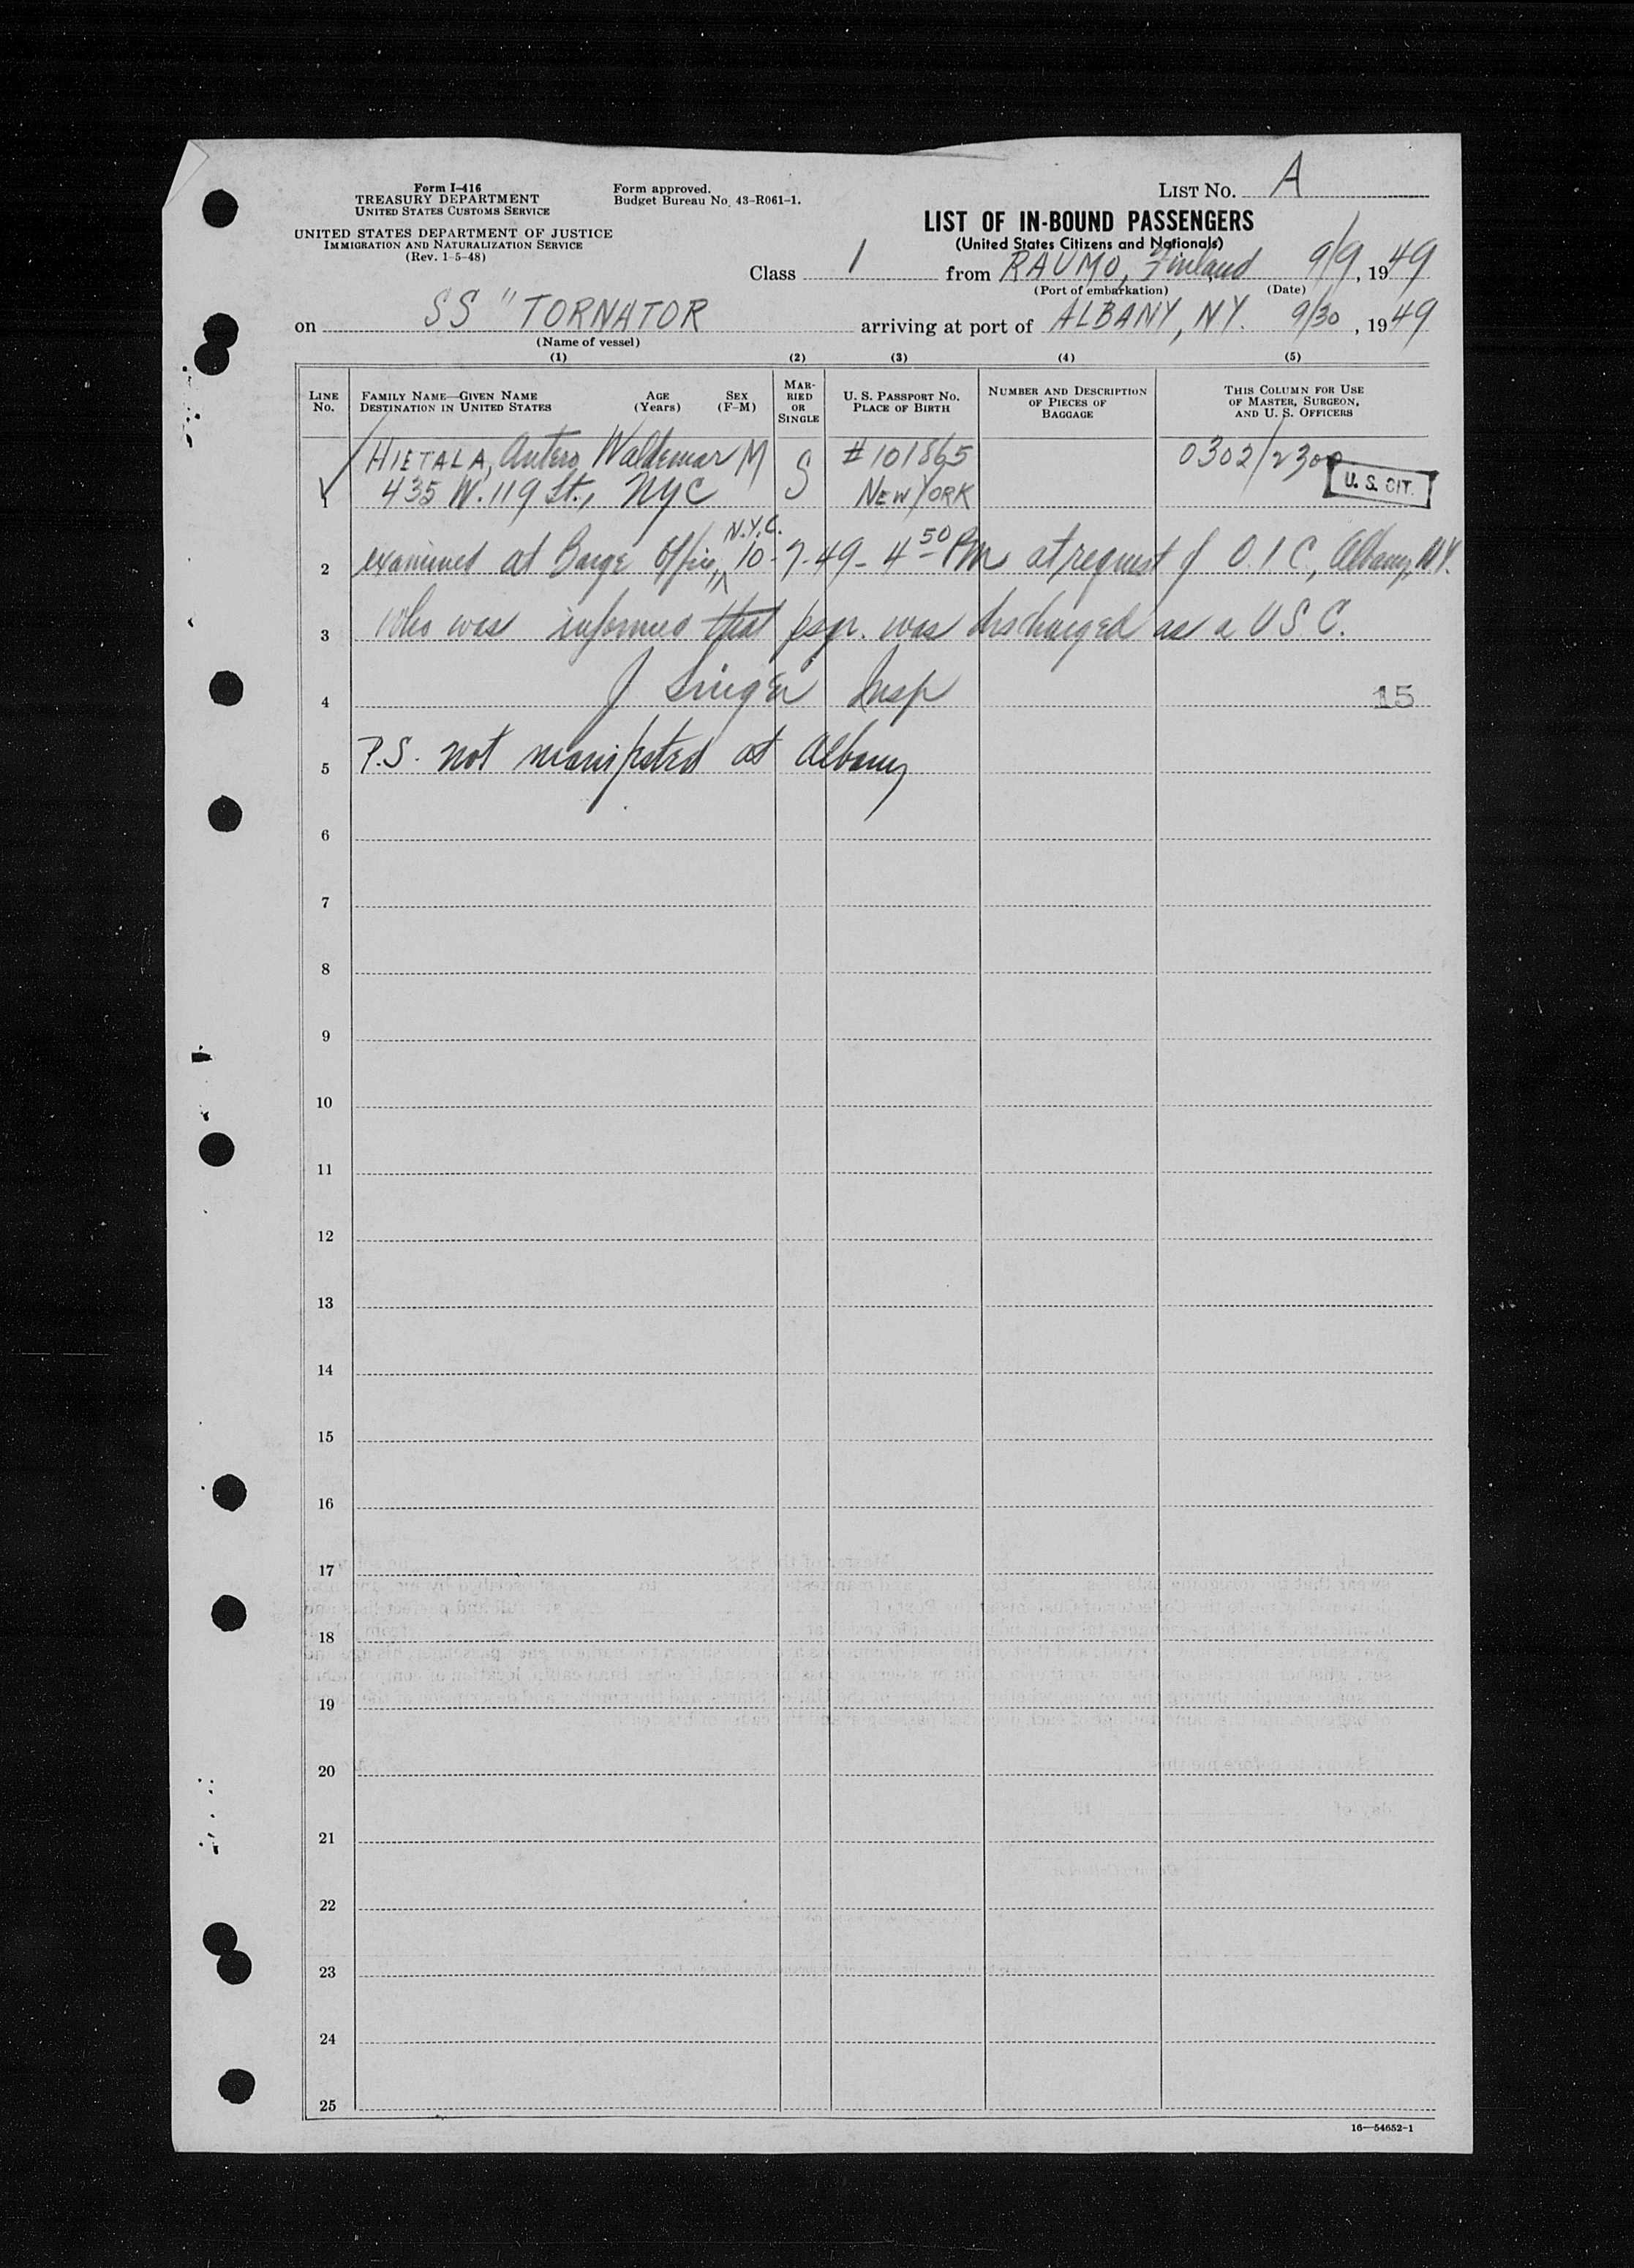 Form I-416
TREASURY DEPARTMENT
UNITED STATES CUSTOMS SERVICE
UNITED STATES DEPARTMENT OF JUSTICE
IMMIGRATION AND NATURALIZATION SERVICE
(Rev. 1-5-48)
Form approved.
Budget Bureau No. 43-R061-1.
LIST NO. A
LIST OF IN-BOUND PASSENGERS
(United States Citizens and Nationals)
Class 1 from RAUMO, Finland 9/9, 1949
(Port of embarkation) (Date)
on SS "TORNATOR arriving at port of ALBANY, NY. 9/30, 1949
(Name of vessel)
(1) (2) (3) (4) (5)
LINE NO.
FAMILY NAME—GIVEN NAME AGE SEX
DESTINATION IN UNITED STATES (Years) (F-M)
MARRIED OR SINGLE
U. S. PASSPORT NO.
PLACE OF BIRTH
NUMBER AND DESCRIPTION
OF PIECES OF
BAGGAGE
THIS COLUMN FOR USE
OF MASTER, SURGEON,
AND U. S. OFFICERS
HIETALA, Antero Waldemar M S #101865 0302/2300
1 435 W. 119 St., NYC NEW YORK U. S. CIT.
N.Y.C.
2 examined at Barge Office, 10-7-49- 4 50 PM at request of O.I.C., Albany, N.Y.
3 Who was informed that psgr. was discharged as a U S C.
4 J Singer Insp 15
5 P.S. not manifested at Albany
6
7
8
9
10
11
12
13
14
15
16
17
18
19
20
21
22
23
24
25
16—54652-1